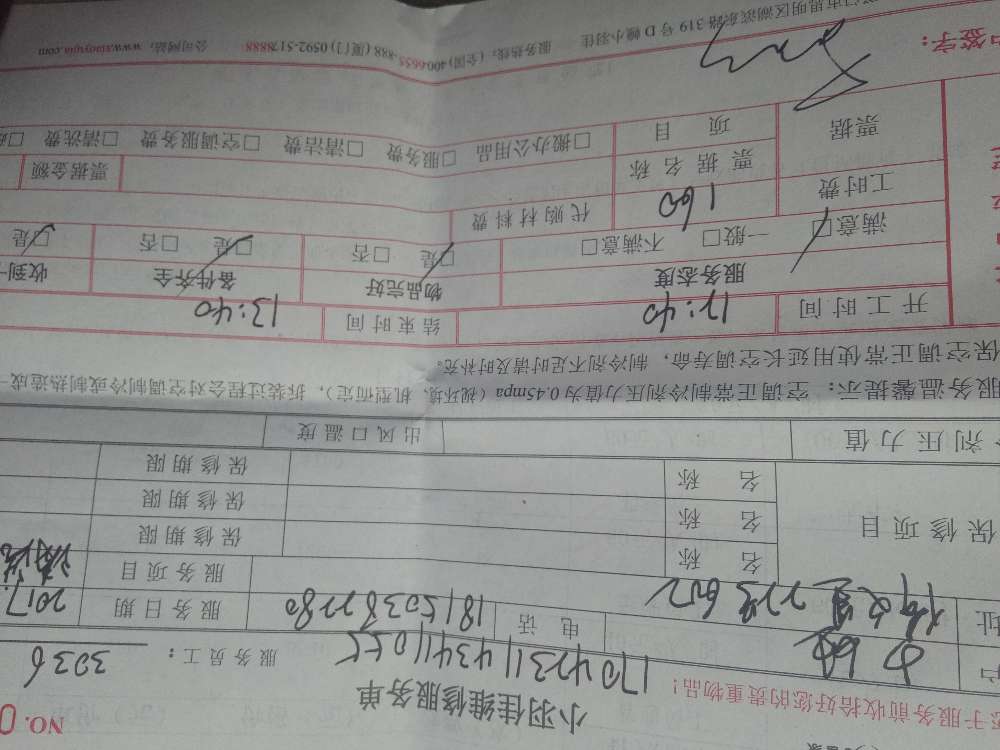 NO. 0
小羽佳维修服务单
请于服务前收拾好您的贵重物品!
17047311434110155
服务员工: 3036
户
电话 18150387780
服务日期 2017.
址
服务项目
保修项目
名称 保修期限
名称 保修期限
名称 保修期限
剂压力值 出风口温度
服务温馨提示: 空调正常制冷剂压力值为0.45mpa (视环境、机型而定), 拆装过程会对空调制冷或制热造成一
保空调正常使用延长空调寿命, 制冷剂不足时请及时补充。
开工时间 12:40 结束时间 13:40
服务态度 物品完好 备件齐全 收到
满意□ 一般□ 不满意□ □是 □否 □是 □否 □是
工时费 160 代购材料费
票据 票据名称 票据金额
项目 □搬办公用品 □服务费 □清洁费 □空调服务费 □清洗费
签字:
明区湖滨东路319号D幢小羽佳 服务热线: (全国)400-6655-888 (厦门)0592-5178888 公司网站: www.xiaoyujia.com